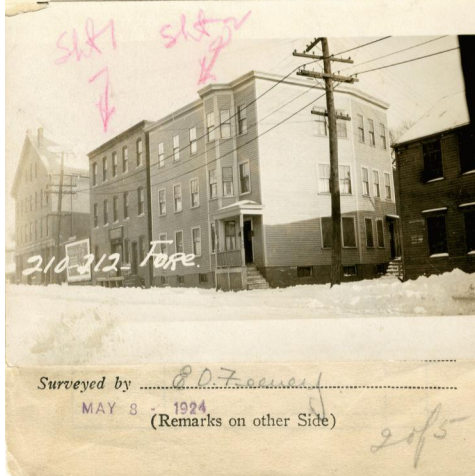 Sht 1 Sht 2
210-212- Fore.
Surveyed by E. O. Feeney
MAY 8 - 1924
(Remarks on other Side)
2 of 5